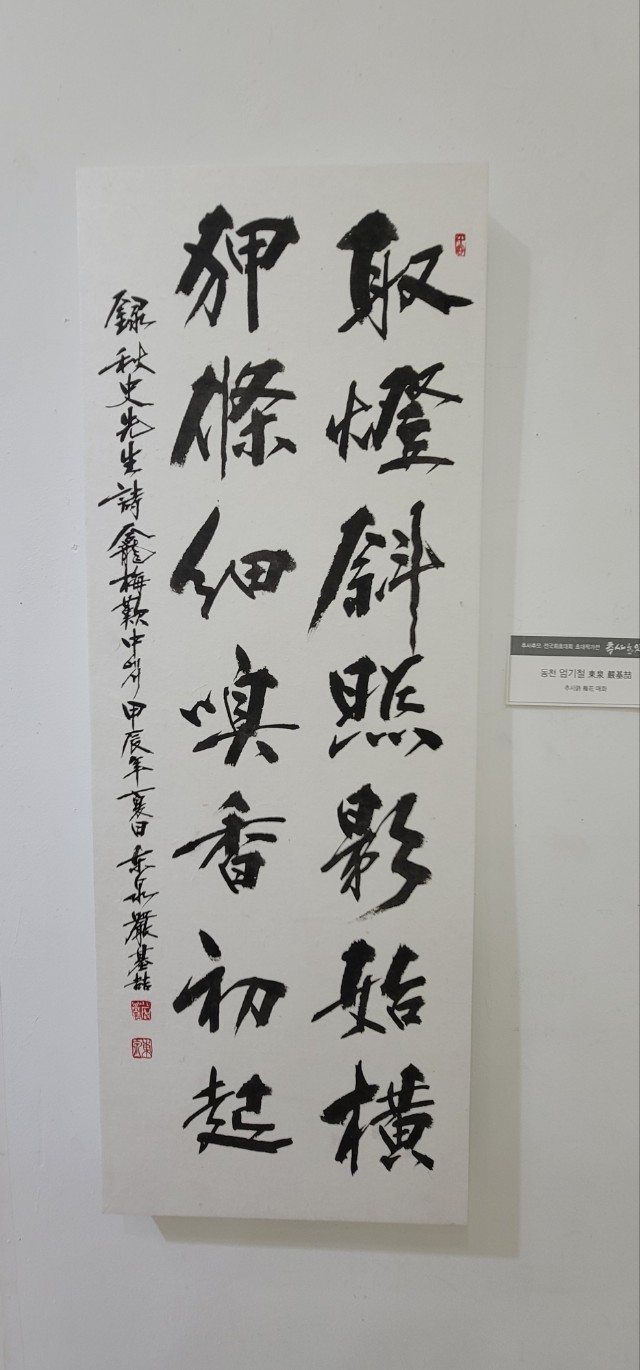 取燈斜照影始橫
狎條細嗅香初起
錄秋史先生詩龕梅歎中 甲辰年 日 东泉嚴基喆
추사추모 전국휘호대회 초대작가전
동천 엄기철 東泉 嚴基喆
추사詩 梅花 매화